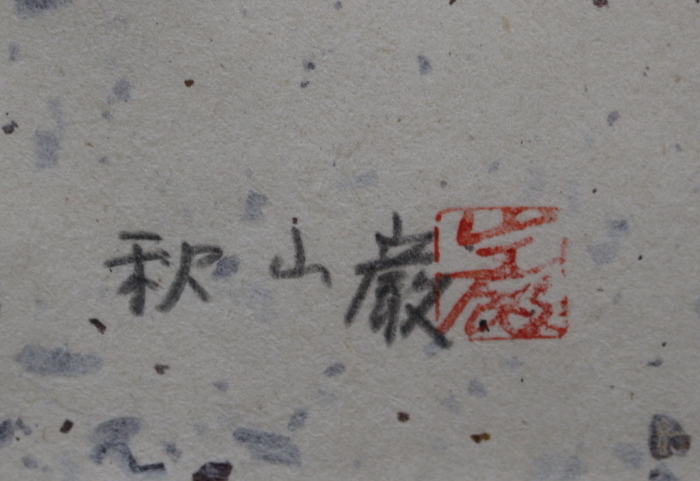 秋山巌 巌